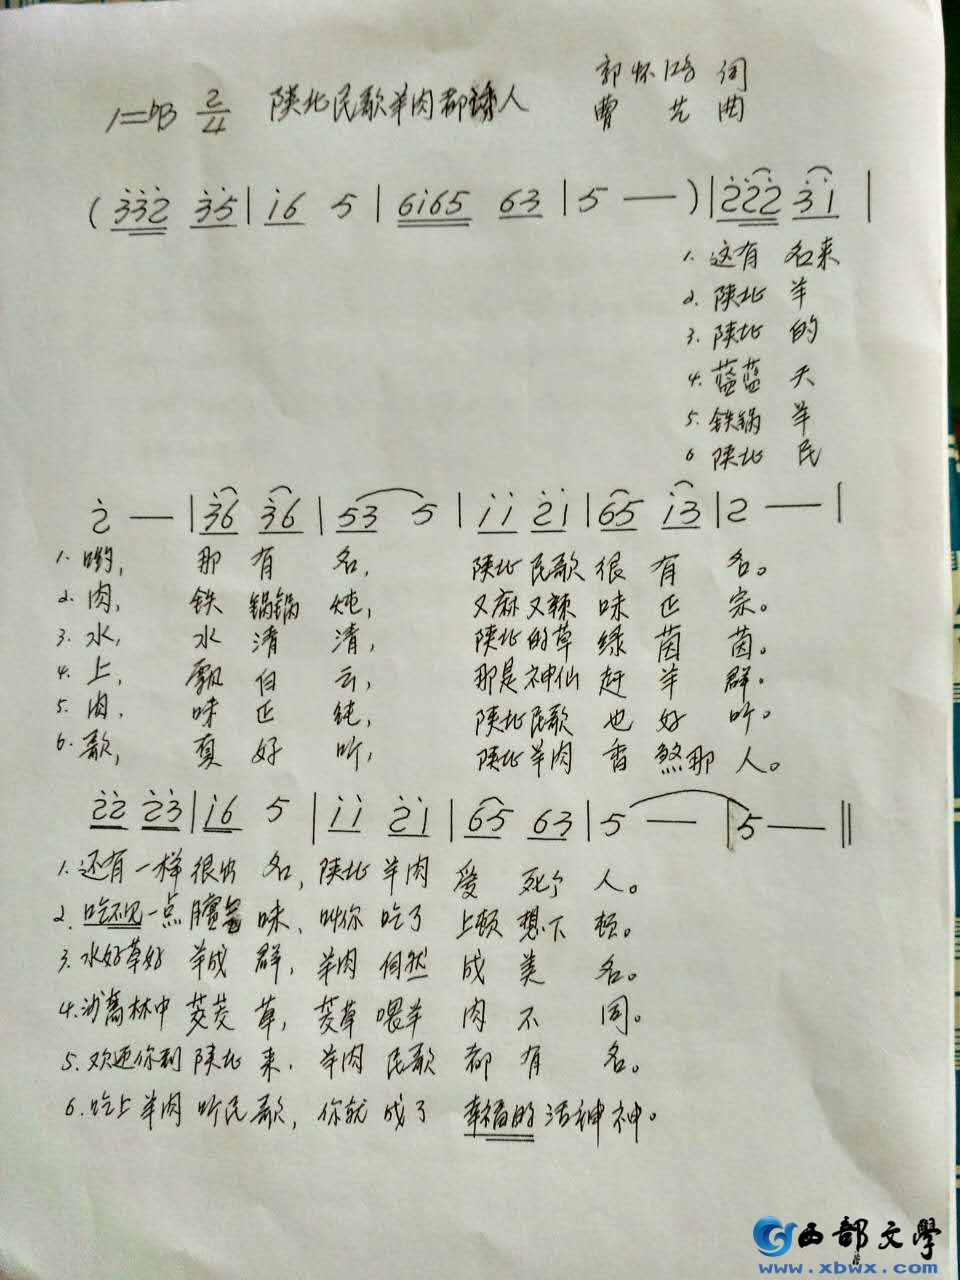 1=bB 2/4 陕北民歌羊肉都诱人
郭怀鸿 词
曹艺 曲
(3̇3̇2̇ 3̇5̇|i6 5|6i65 63|5 —)|2̇2̇2̇ 3̇i|
1. 这有 名来
2. 陕北 羊
3. 陕北 的
4. 蓝蓝 天
5. 铁锅 羊
6 陕北 民
2̇ —|3̇6 3̇6|53 5|ii 2̇i|65 i3̇|2 —|
1. 哟, 那有名, 陕北民歌很有名。
2. 肉, 铁锅锅炖, 又麻又辣味正宗。
3. 水, 水清清, 陕北的草绿茵茵。
4. 上, 飘白云, 那是神仙赶羊群。
5. 肉, 味正纯, 陕北民歌也好听。
6. 歌, 真好听, 陕北羊肉香煞那人。
2̇2̇ 2̇3̇|i6 5|ii 2̇i|65 63|5 —|5 —‖
1. 还有一样很出名, 陕北羊肉爱死个人。
2. 吃不见一点膻味, 叫你吃了上顿想下顿。
3. 水好草好羊成群, 羊肉自然成美名。
4. 沙蒿林中茭茭草, 茭草喂羊肉不同。
5. 欢迎你到陕北来, 羊肉民歌都有名。
6. 吃上羊肉听民歌, 你就成了幸福的活神神。
西部文學
www.xbwx.com